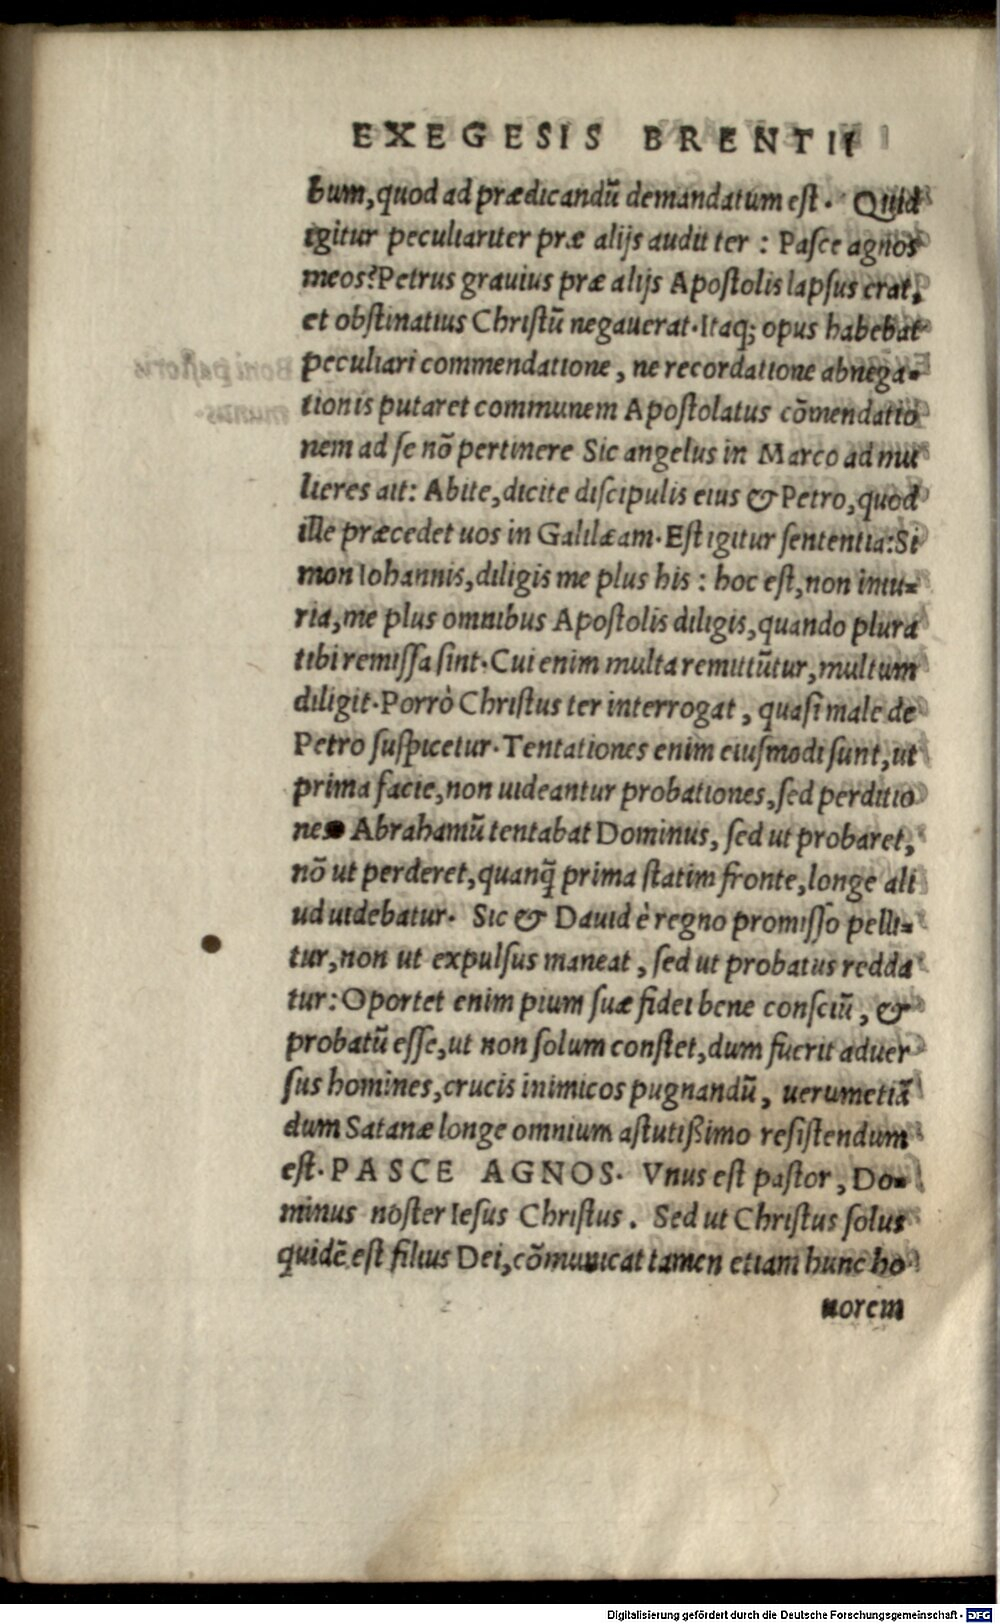 EXEGESIS BRENTII
bum, quod ad prædicandũ demandatum est. Quid
igitur peculiariter præ alijs audit ter: Pasce agnos
meos? Petrus grauius præ alijs Apostolis lapsus erat,
et obstinatius Christũ negauerat. Itaq; opus habebat
peculiari commendatione, ne recordatione abnega-
tionis putaret communem Apostolatus cõmendatio
nem ad se nõ pertinere Sic angelus in Marco ad mu
lieres ait: Abite, dicite discipulis eius & Petro, quod
ille præcedet uos in Galilæam. Est igitur sententia: Si
mon Iohannis, diligis me plus his: hoc est, non iniu-
ria, me plus omnibus Apostolis diligis, quando plura
tibi remissa sint. Cui enim multa remittũtur, multum
diligit. Porrò Christus ter interrogat, quasi male de
Petro suspicetur. Tentationes enim eiusmodi sunt, ut
prima facie, non uideantur probationes, sed perditio
nes Abrahamũ tentabat Dominus, sed ut probaret,
nõ ut perderet, quanq̃ prima statim fronte, longe ali
ud uidebatur. Sic & Dauid è regno promisso pelli-
tur, non ut expulsus maneat, sed ut probatus redda
tur: Oportet enim pium suæ fidei bene consciũ, &
probatũ esse, ut non solum constet, dum fuerit aduer
sus homines, crucis inimicos pugnandũ, uerumetiã
dum Satanæ longe omnium astutißimo resistendum
est. PASCE AGNOS. Vnus est pastor, Do-
minus noster Iesus Christus. Sed ut Christus solus
quidẽ est filius Dei, cõmunicat tamen etiam hunc ho
norem
Digitalisierung gefördert durch die Deutsche Forschungsgemeinschaft - DFG